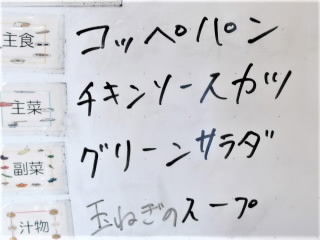 主食 コッペパン
主菜 チキンソースカツ
副菜 グリーンサラダ
汁物 玉ねぎのスープ